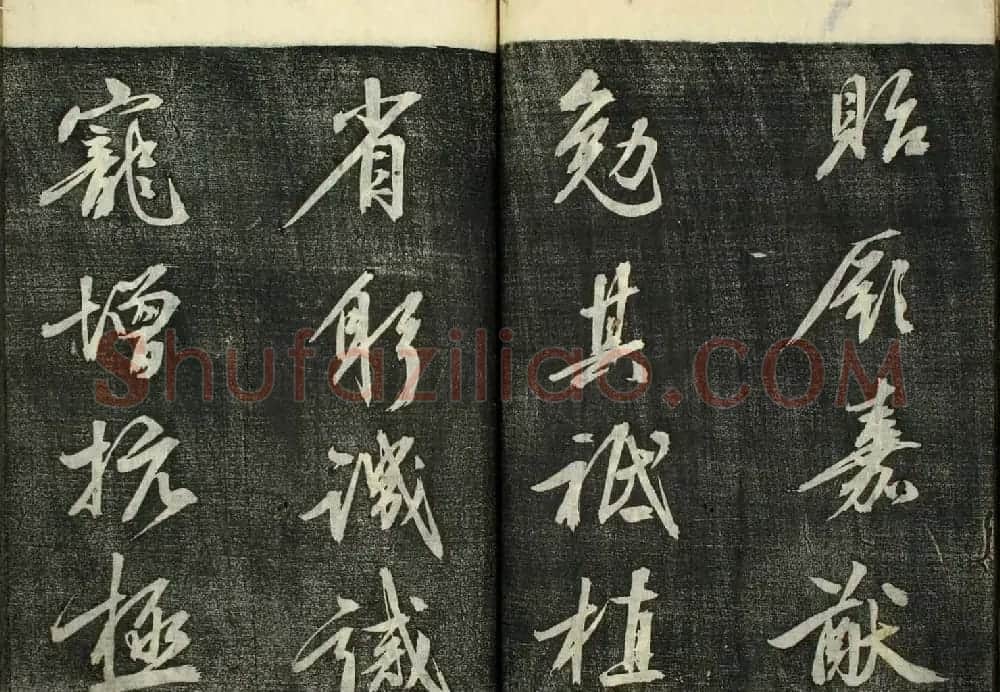 貽厥嘉猷
勉其祗植
省躬譏誡
寵增抗極
Shufaziliao.COM